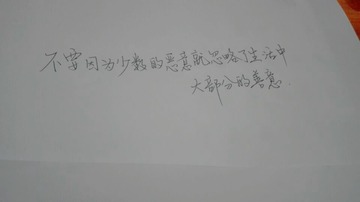 不要因为少数的恶意就忽略了生活中
大部分的善意.